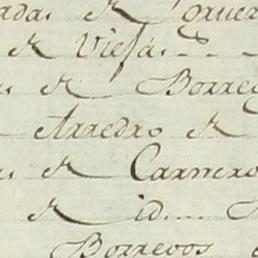 adas de
de Viejas
as de Borreg
Arredro de
as de Carnero
de id....
Borregos